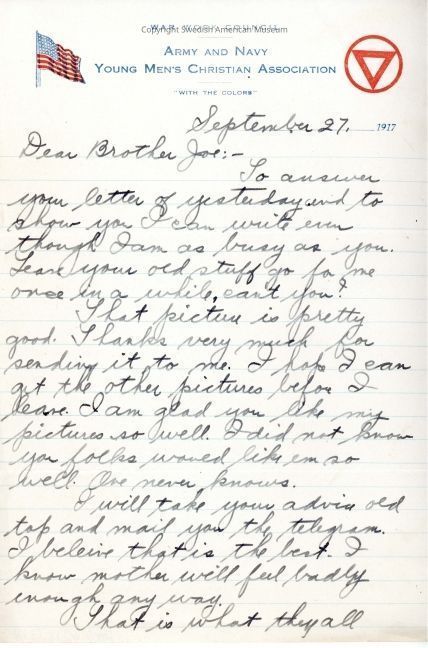 Copyright Swedish American Museum
WAR WORK COUNCIL
ARMY AND NAVY
YOUNG MEN'S CHRISTIAN ASSOCIATION
"WITH THE COLORS"
September 27, 1917
Dear Brother Joe:-
To answer
your letter of yesterday and to
show you I can write even
though I am as busy as you.
Leave your old stuff go for me
once in a while, can't you?
That picture is pretty
good. Thanks very much for
sending it to me. I hope I can
get the other pictures before I
leave. I am glad you like my
pictures so well. I did not know
you folks would like em so
well. One never knows.
I will take your advice old
top and mail you the telegram.
I beleive that is the best. I
know mother will feel badly
enough any way.
That is what they all